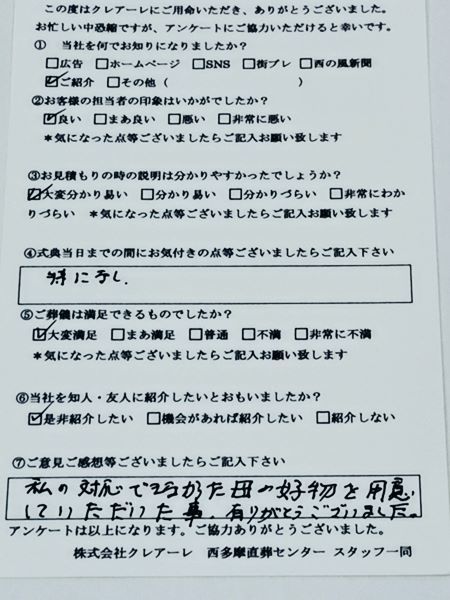 この度はクレアーレにご用命いただき、ありがとうございました。
お忙しい中恐縮ですが、アンケートにご協力いただけると幸いです。
① 当社を何でお知りになりましたか？
□広告 □ホームページ □SNS □街プレ □西の風新聞
☑ご紹介 □その他（ ）
②お客様の担当者の印象はいかがでしたか？
☑良い □まあ良い □悪い □非常に悪い
＊気になった点等ございましたらご記入お願い致します
③お見積もりの時の説明は分かりやすかったでしょうか？
☑大変分かり易い □分かり易い □分かりづらい □非常にわか
りづらい ＊気になった点等ございましたらご記入お願い致します
④式典当日までの間にお気付きの点等ございましたらご記入下さい
特になし.
⑤ご葬儀は満足できるものでしたか？
☑大変満足 □まあ満足 □普通 □不満 □非常に不満
＊気になった点等ございましたらご記入お願い致します
⑥当社を知人・友人に紹介したいとおもいましたか？
☑是非紹介したい □機会があれば紹介したい □紹介しない
⑦ご意見ご感想等ございましたらご記入下さい
私の対応できなかった母の好物を用意
していただいた事、有りがとうございました。
アンケートは以上になります。ご協力ありがとうございました。
株式会社クレアーレ 西多摩直葬センター スタッフ一同